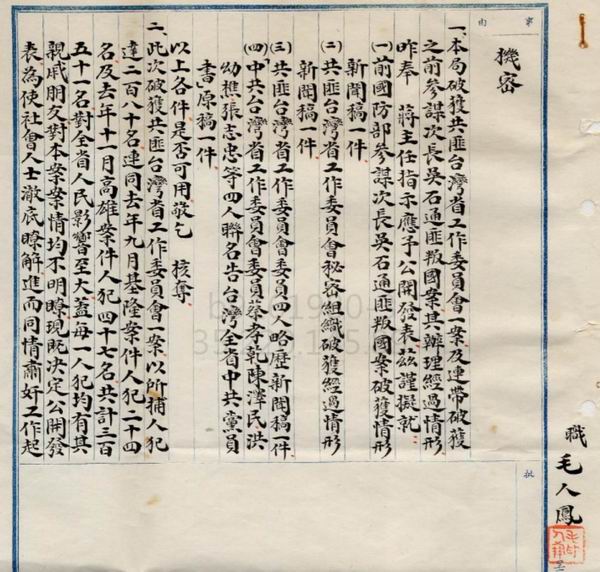 事由
機密
一、本局破獲共匪台灣省工作委員會一案及連帶破獲
之前參謀次長吳石通匪叛國案其辦理經過情形
昨奉　蔣主任指示應予公開發表茲謹擬就
㈠前國防部參謀次長吳石通匪叛國案破獲情形
新聞稿一件
㈡共匪台灣省工作委員會秘密組織破獲經過情形
新聞稿一件
㈢共匪台灣省工作委員會委員四人略歷新聞稿一件
㈣中共台灣省工作委員會委員蔡孝乾陳澤民洪
幼樵張志忠等四人聯名告台灣全省中共黨員
書」原稿一件
以上各件是否可用敬乞　核奪
二、此次破獲共匪台灣省工作委員會一案以所捕人犯
達二百八十名連同去年九月基隆案件人犯二十四
名及去年十一月高雄案件人犯四十七名共計三百
五十一名對全省人民影響至大蓋每一人犯均有其
親戚朋友對本案案情均不明瞭現既決定公開發
表為使社會人士澈底瞭解進而同情肅奸工作起
批
職　毛人鳳